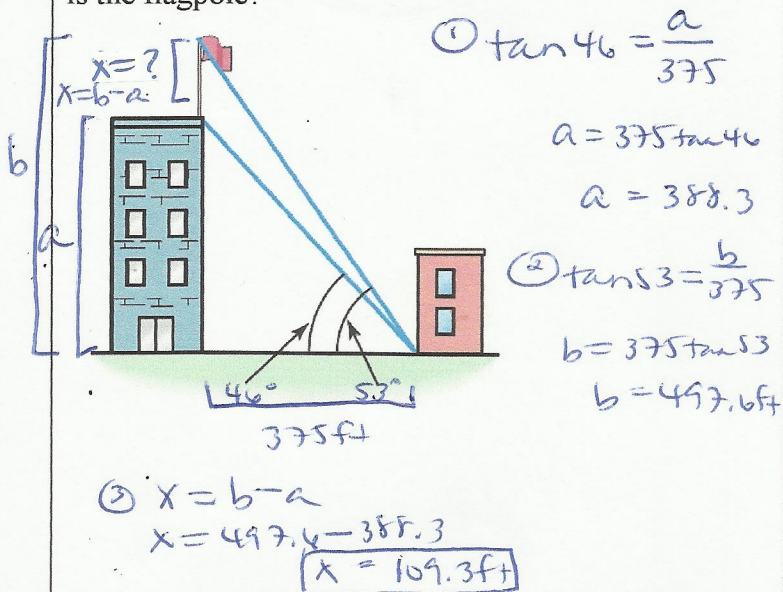 is the flagpole?
x=?
x=b-a
b
a
46°
53°
375ft
① tan 46 = a/375
a = 375 tan 46
a = 388.3
② tan 53 = b/375
b = 375 tan 53
b = 497.6ft
③ x = b - a
x = 497.6 - 388.3
x = 109.3ft